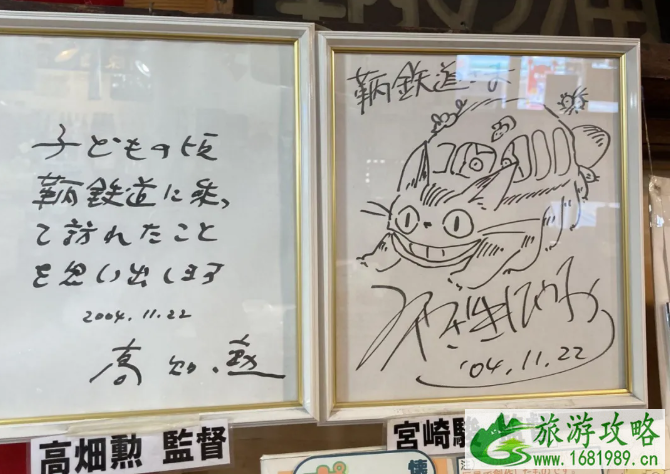 子どもの頃
鞆鉄道に乗っ
て訪れたこと
を思い出します
2004.11.22
高畑勲
高畑勲 監督
鞆鉄道
みやざきはやお
'04.11.22
宮崎駿
旅游攻略
www.1681989.cn